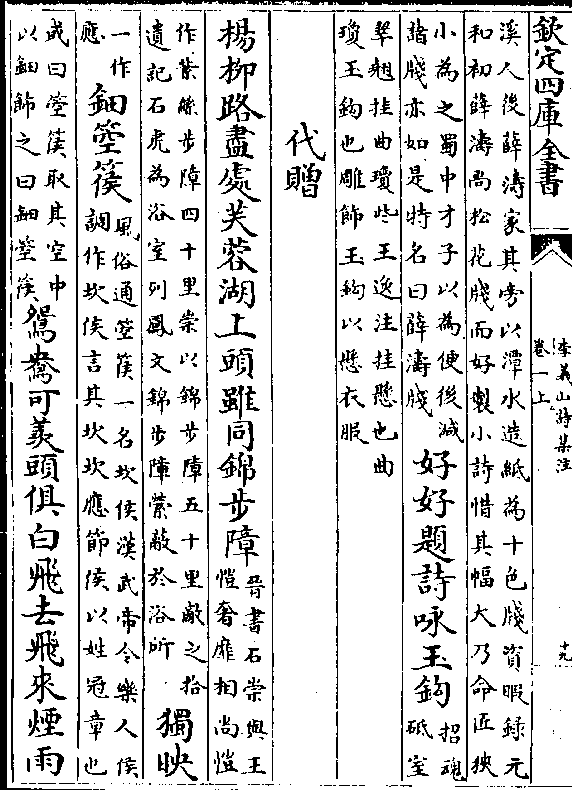 欽定四庫全書
李義山詩集注
卷一上
十九
溪人後薛濤家其旁以潭水造紙為十色牋資暇錄元
和初薛濤尚松花牋而好製小詩惜其幅大乃命匠狹
小為之蜀中才子以為便後減
諸牋亦如是特名曰薛濤牋
好好題詩咏玉鈎
招魂
砥室
翠翹挂曲瓊些王逸注挂懸也曲
瓊玉鈎也雕飾玉鈎以懸衣服
代贈
楊柳路盡處芙蓉湖上頭雖同錦步障
晉書石崇與王
愷奢靡相尚愷
作紫絲步障四十里崇以錦步障五十里敵之拾
遺記石虎為浴室列鳳文錦步障縈蔽於浴所
獨映
一作
應
鈿箜篌
風俗通箜篌一名坎侯漢武帝令樂人侯
調作坎侯言其坎坎應節侯以姓冠章也
或曰箜篌取其空中
以鈿飾之曰鈿箜篌
鴛鴦可羨頭俱白飛去飛來煙雨